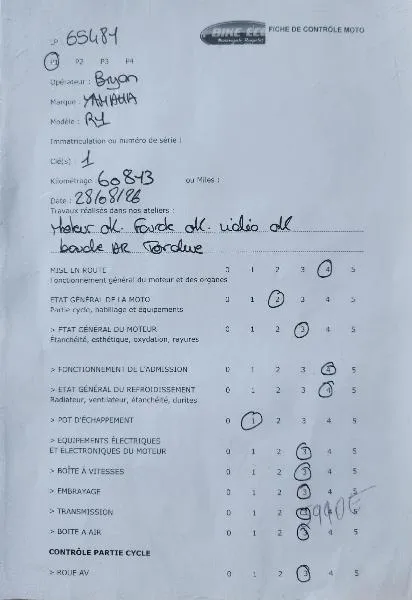 LP 65481
BIKE-ECO FICHE DE CONTRÔLE MOTO
P1 P2 P3 P4
Opérateur : Bryan
Marque : YAMAHA
Modèle : R1
Immatriculation ou numéro de série :
Clé(s) 1
Kilométrage : 60843 ou Miles :
Date : 28/08/26
Travaux réalisés dans nos ateliers :
Moteur ok. Fourche ok. vidéo ok
boucle AR Tordue
MISE EN ROUTE 0 1 2 3 4 5
Fonctionnement général du moteur et des organes
ETAT GÉNÉRAL DE LA MOTO 0 1 2 3 4 5
Partie cycle, habillage et équipements
> ETAT GÉNÉRAL DU MOTEUR 0 1 2 3 4 5
Etanchéité, esthétique, oxydation, rayures
> FONCTIONNEMENT DE L'ADMISSION 0 1 2 3 4 5
> ETAT GÉNÉRAL DU REFROIDISSEMENT 0 1 2 3 4 5
Radiateur, ventilateur, étanchéité, durites
> POT D'ÉCHAPPEMENT 0 1 2 3 4 5
> EQUIPEMENTS ÉLECTRIQUES
ET ÉLECTRONIQUES DU MOTEUR 0 1 2 3 4 5
> BOÎTE À VITESSES 0 1 2 3 4 5
> EMBRAYAGE 0 1 2 3 4 5
> TRANSMISSION 0 1 2 3 4 5
> BOITE A AIR 0 1 2 3 4 5
CONTRÔLE PARTIE CYCLE
> ROUE AV 0 1 2 3 4 5